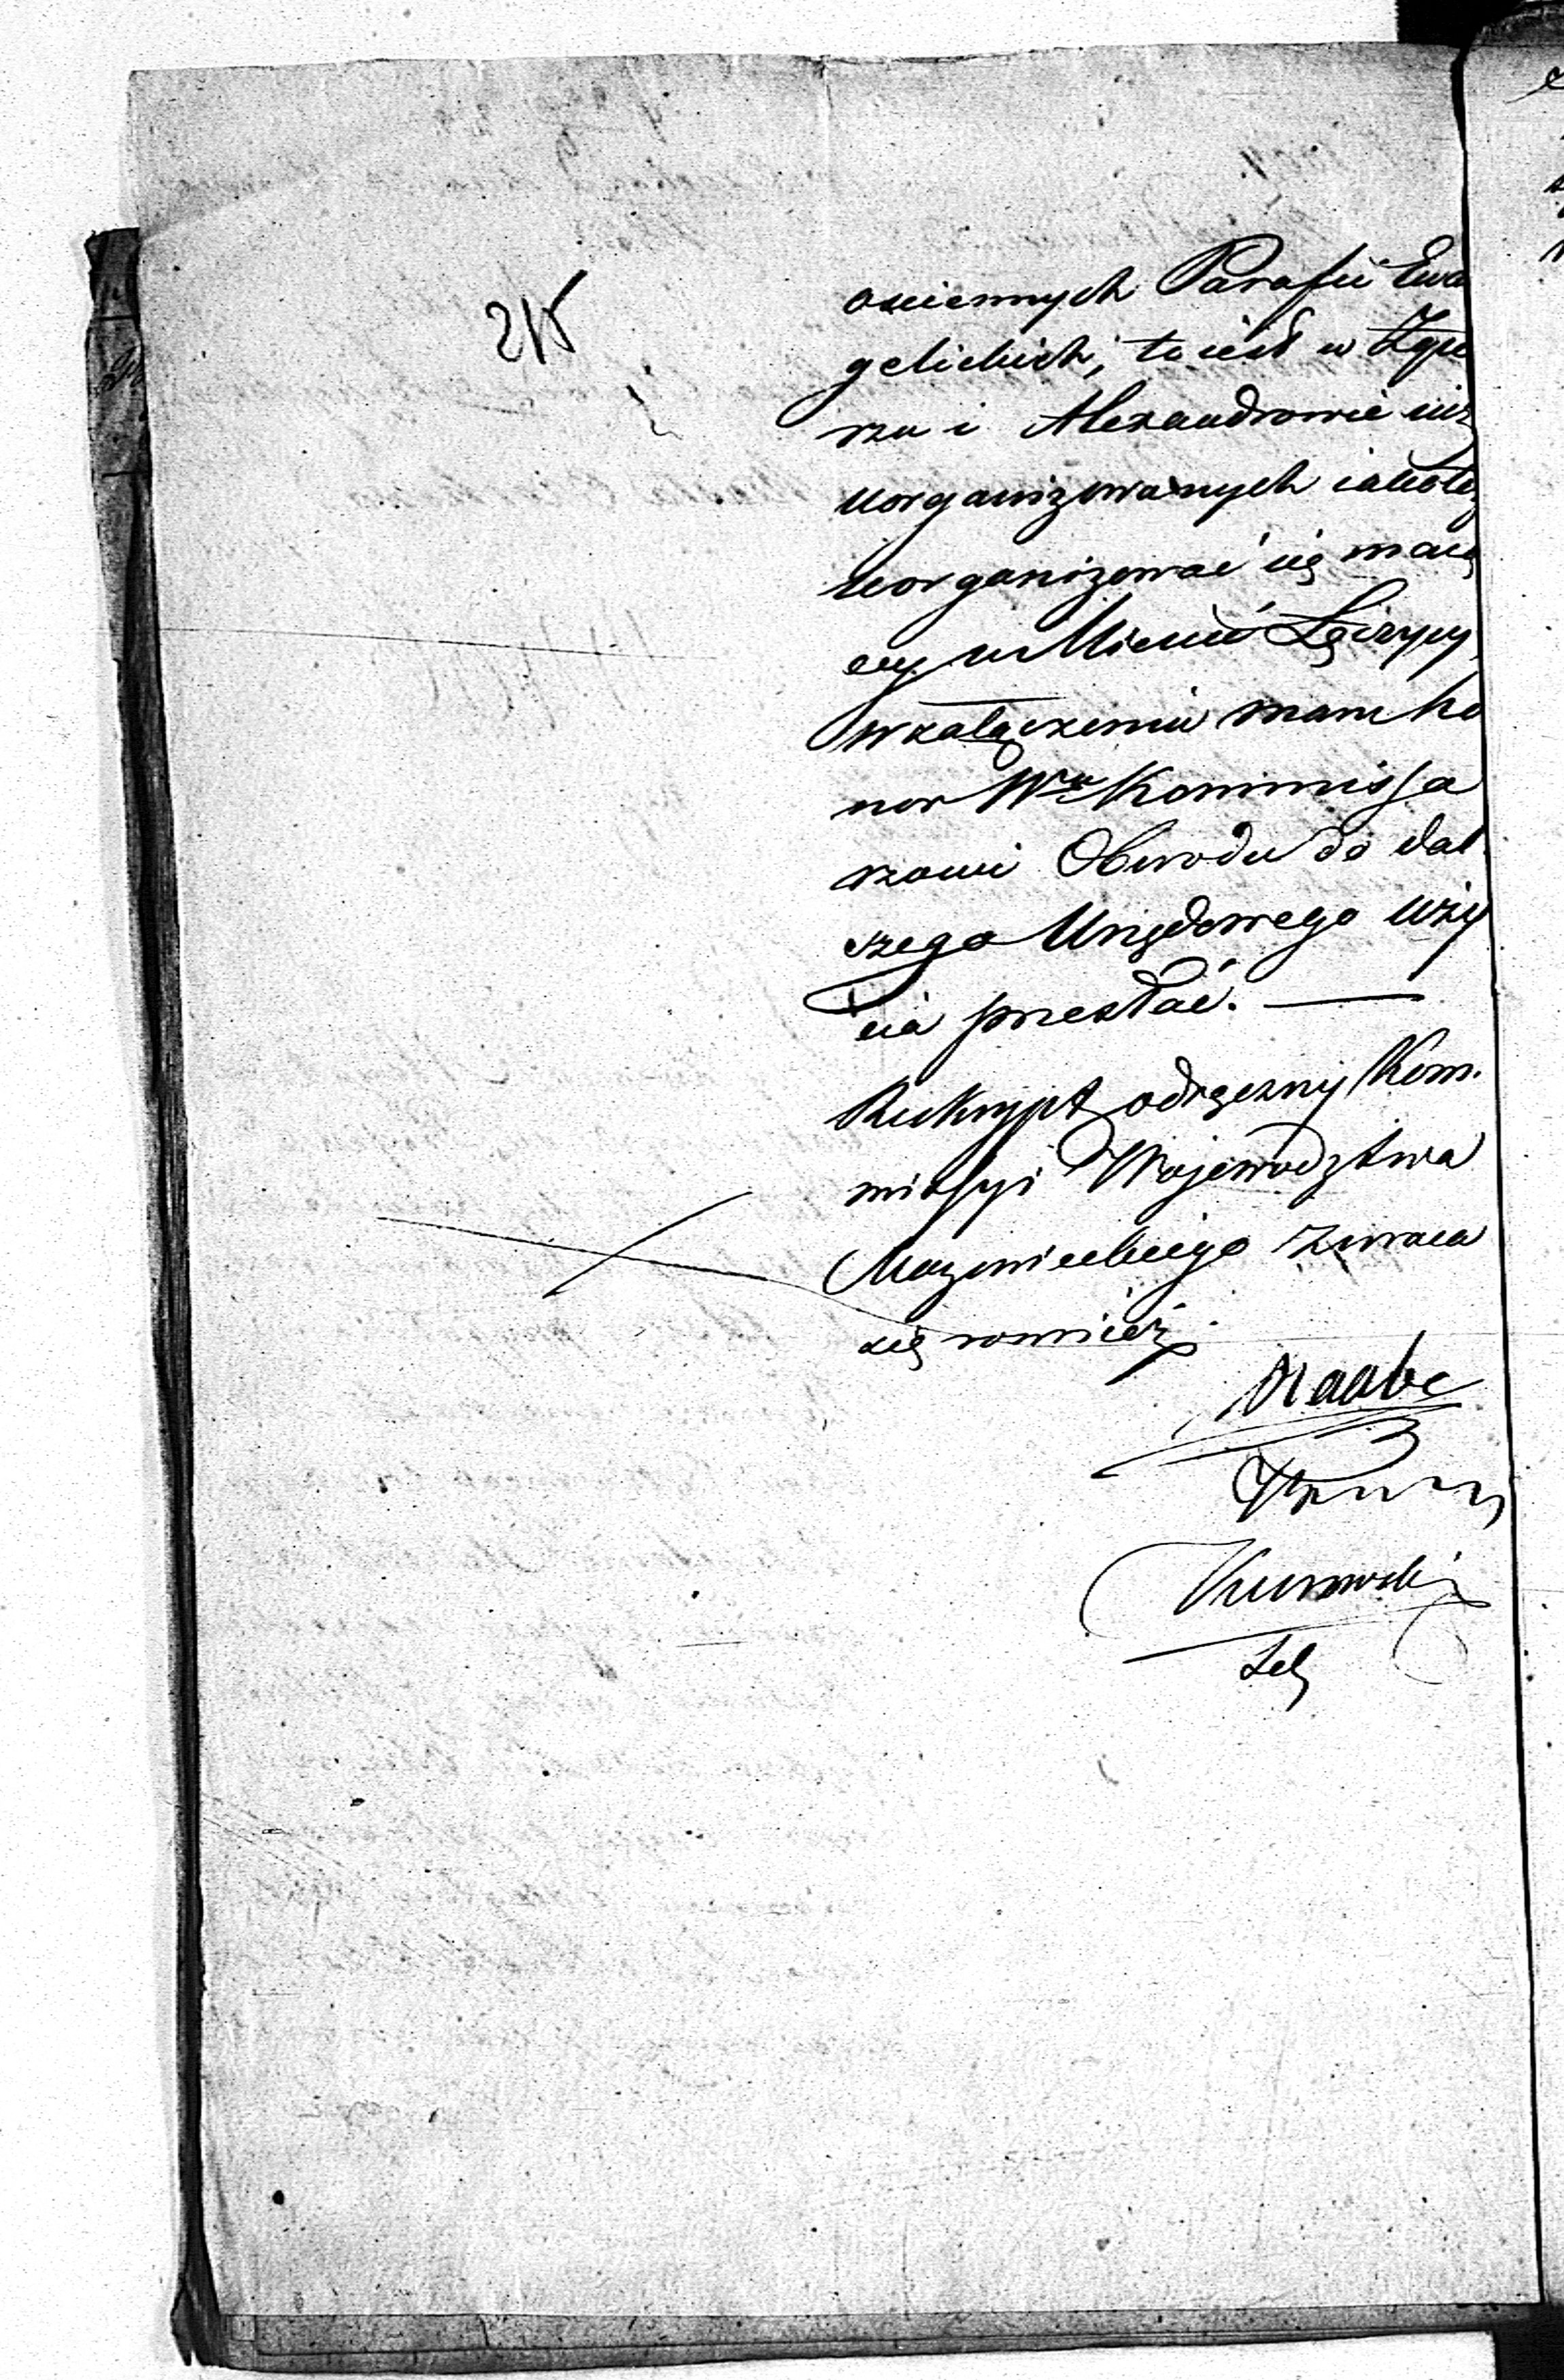 215
osciennych Parafii Ewa
gelickich, to iest w Zgie
rzu i Alexandrowie iuż
uorganizowanych iakoteż
uorganizować się maią
cey w Mieście Łęczycy
w załączeniu mam ho
nor Wmu Kommissa
rzowi Obwodu do dal
szego Urzędowego uży
cia przesłać. —
Reskrypt odręczny Kom.
missyi Woiewodztwa
Mazowieckiego zwraca
się rownież.
Raabe
Kurowski
Sek